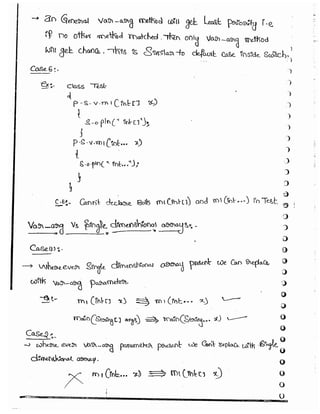 → In General var-arg method will get Least Priority i.e
if no other method matched. Then only var-arg method
will get chance. This is Similar to default case inside Switch.
Case 6:-
Ex:- class Test
{
P.S.V.m1 (int[] x)
{
S.o.pln(" int[]");
}
P.S.V.m1 (int... x)
{
S.o.pln(" int...");
}
}
C.E:- Can't declare Both m1(int[]) and m1(int...) in Test
Var-arg Vs Single dimensional arrays:-
Case(1):-
→ Where ever Single dimensional array present we Can Replace
with var-arg parameter.
Eg:- m1 (int[] x) ⟹ m1 (int... x) ✓
main(String[] args) ⟹ main(String... x) ✓
Case 2:-
→ where ever var-arg parameter present we Can't replace with Single
dimensional array.
✗ m1 (int... x) ⟹ m1 (int[] x)